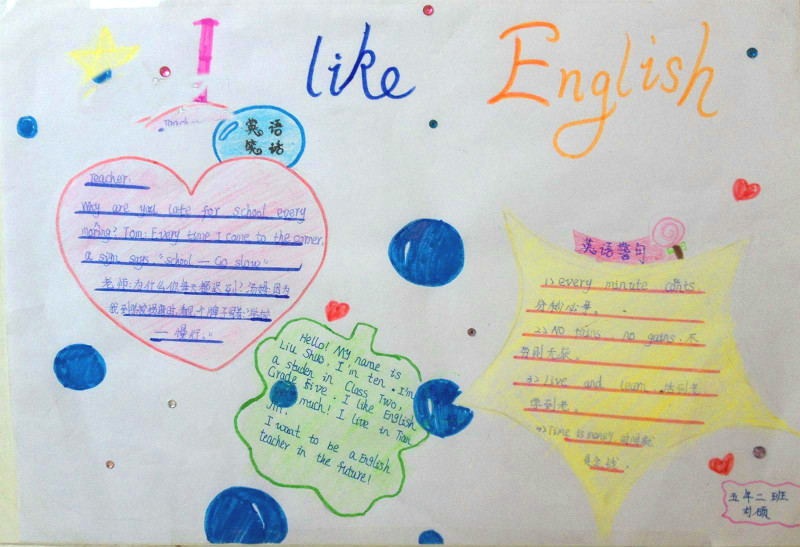 I like English
英语
笑话
Teacher:
Why are you late for school every
morning? Tom: Every time I come to the corner,
a sign says, "school — Go slow"
老师:为什么你每天都迟到?汤姆:因为
我到
— 慢行."
Hello! My name is
Liu Shuo. I'm ten. I'm
a studen in Class Two,
Grade Five. I like English
much! I live in Tian
I want to be a English
teacher in the future!
英语警句
1) every minute counts.
分秒必争。
2) NO pains, no gains. 不
劳则无获。
3) live and learn. 活到老
学到老。
4) Time is money 时间就
是金钱.
五年二班
刘硕